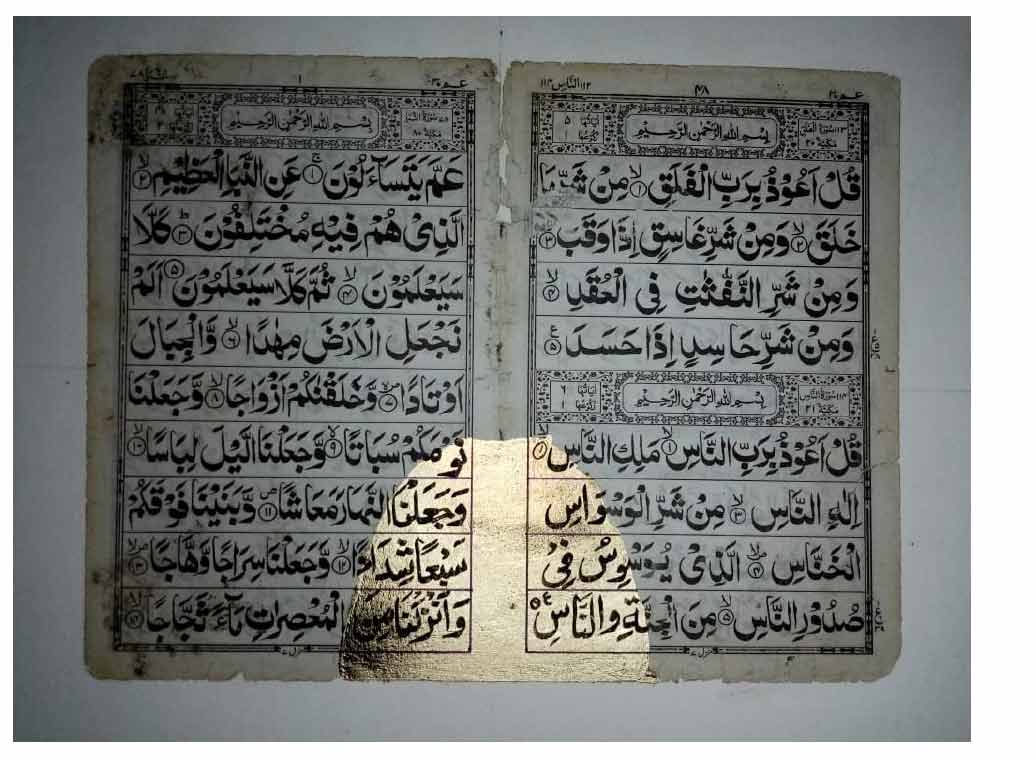 ١١٢ النَّاس ١١٤
٤٨
عمّ ٣٠
١١٣ سُوْرَةُ الْفَلَقِ
مَكِّيَّةٌ ٢٠
بِسْمِ اللهِ الرَّحْمٰنِ الرَّحِيْمِ
اٰيَاتُهَا ٥
رُكُوْعُهَا ١
قُلْ اَعُوْذُ بِرَبِّ الْفَلَقِ ۙ﴿۱﴾ مِنْ شَرِّ مَا
خَلَقَ ۙ﴿۲﴾ وَمِنْ شَرِّ غَاسِقٍ اِذَا وَقَبَ ۙ﴿۳﴾
وَمِنْ شَرِّ النَّفّٰثٰتِ فِى الْعُقَدِ ۙ﴿۴﴾
وَمِنْ شَرِّ حَاسِدٍ اِذَا حَسَدَ ﴿۵﴾
١١٤ سُوْرَةُ النَّاسِ
مَكِّيَّةٌ ٢١
بِسْمِ اللهِ الرَّحْمٰنِ الرَّحِيْمِ
اٰيَاتُهَا ٦
رُكُوْعُهَا ١
قُلْ اَعُوْذُ بِرَبِّ النَّاسِ ۙ﴿۱﴾ مَلِكِ النَّاسِ ۙ﴿۲﴾
اِلٰهِ النَّاسِ ۙ﴿۳﴾ مِنْ شَرِّ الْوَسْوَاسِ
الْخَنَّاسِ ﴿۴﴾ الَّذِىْ يُوَسْوِسُ فِىْ
صُدُوْرِ النَّاسِ ۙ﴿۵﴾ مِنَ الْجِنَّةِ وَالنَّاسِ
منزل ٧
عمّ ٣٠
١
٧٨
سُوْرَةُ النَّبَاِ
مَكِّيَّةٌ ٨٠
بِسْمِ اللهِ الرَّحْمٰنِ الرَّحِيْمِ
عَمَّ يَتَسَآءَلُوْنَ ﴿۱﴾ عَنِ النَّبَاِ الْعَظِيْمِ ۙ﴿۲﴾
الَّذِىْ هُمْ فِيْهِ مُخْتَلِفُوْنَ ؕ﴿۳﴾ كَلَّا
سَيَعْلَمُوْنَ ۙ﴿۴﴾ ثُمَّ كَلَّا سَيَعْلَمُوْنَ ﴿۵﴾ اَلَمْ
نَجْعَلِ الْاَرْضَ مِهٰدًا ۙ﴿۶﴾ وَّالْجِبَالَ
اَوْتَادًا ﴿۷﴾ وَّخَلَقْنٰكُمْ اَزْوَاجًا ۙ﴿۸﴾ وَّجَعَلْنَا
نَوْمَكُمْ سُبَاتًا ۙ﴿۹﴾ وَّجَعَلْنَا الَّيْلَ لِبَاسًا ۙ﴿۱۰﴾
وَّجَعَلْنَا النَّهَارَ مَعَاشًا ﴿۱۱﴾ وَّبَنَيْنَا فَوْقَكُمْ
سَبْعًا شِدَادًا ۙ﴿۱۲﴾ وَّجَعَلْنَا سِرَاجًا وَّهَّاجًا ﴿۱۳﴾
وَّاَنْزَلْنَا مِنَ الْمُعْصِرٰتِ مَآءً ثَجَّاجًا ۙ﴿۱۴﴾
منزل ٧